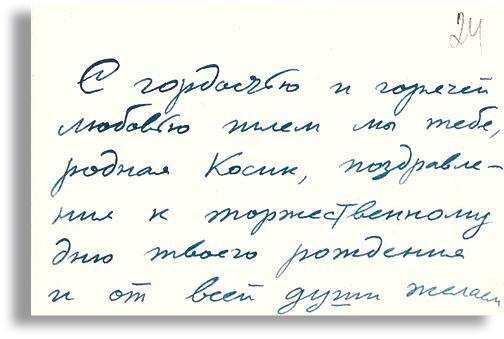 24
С гордостью и горячей
любовью шлем мы тебе,
родная Косик, поздравле-
ния к торжественному
дню твоего рождения
и от всей души желаем